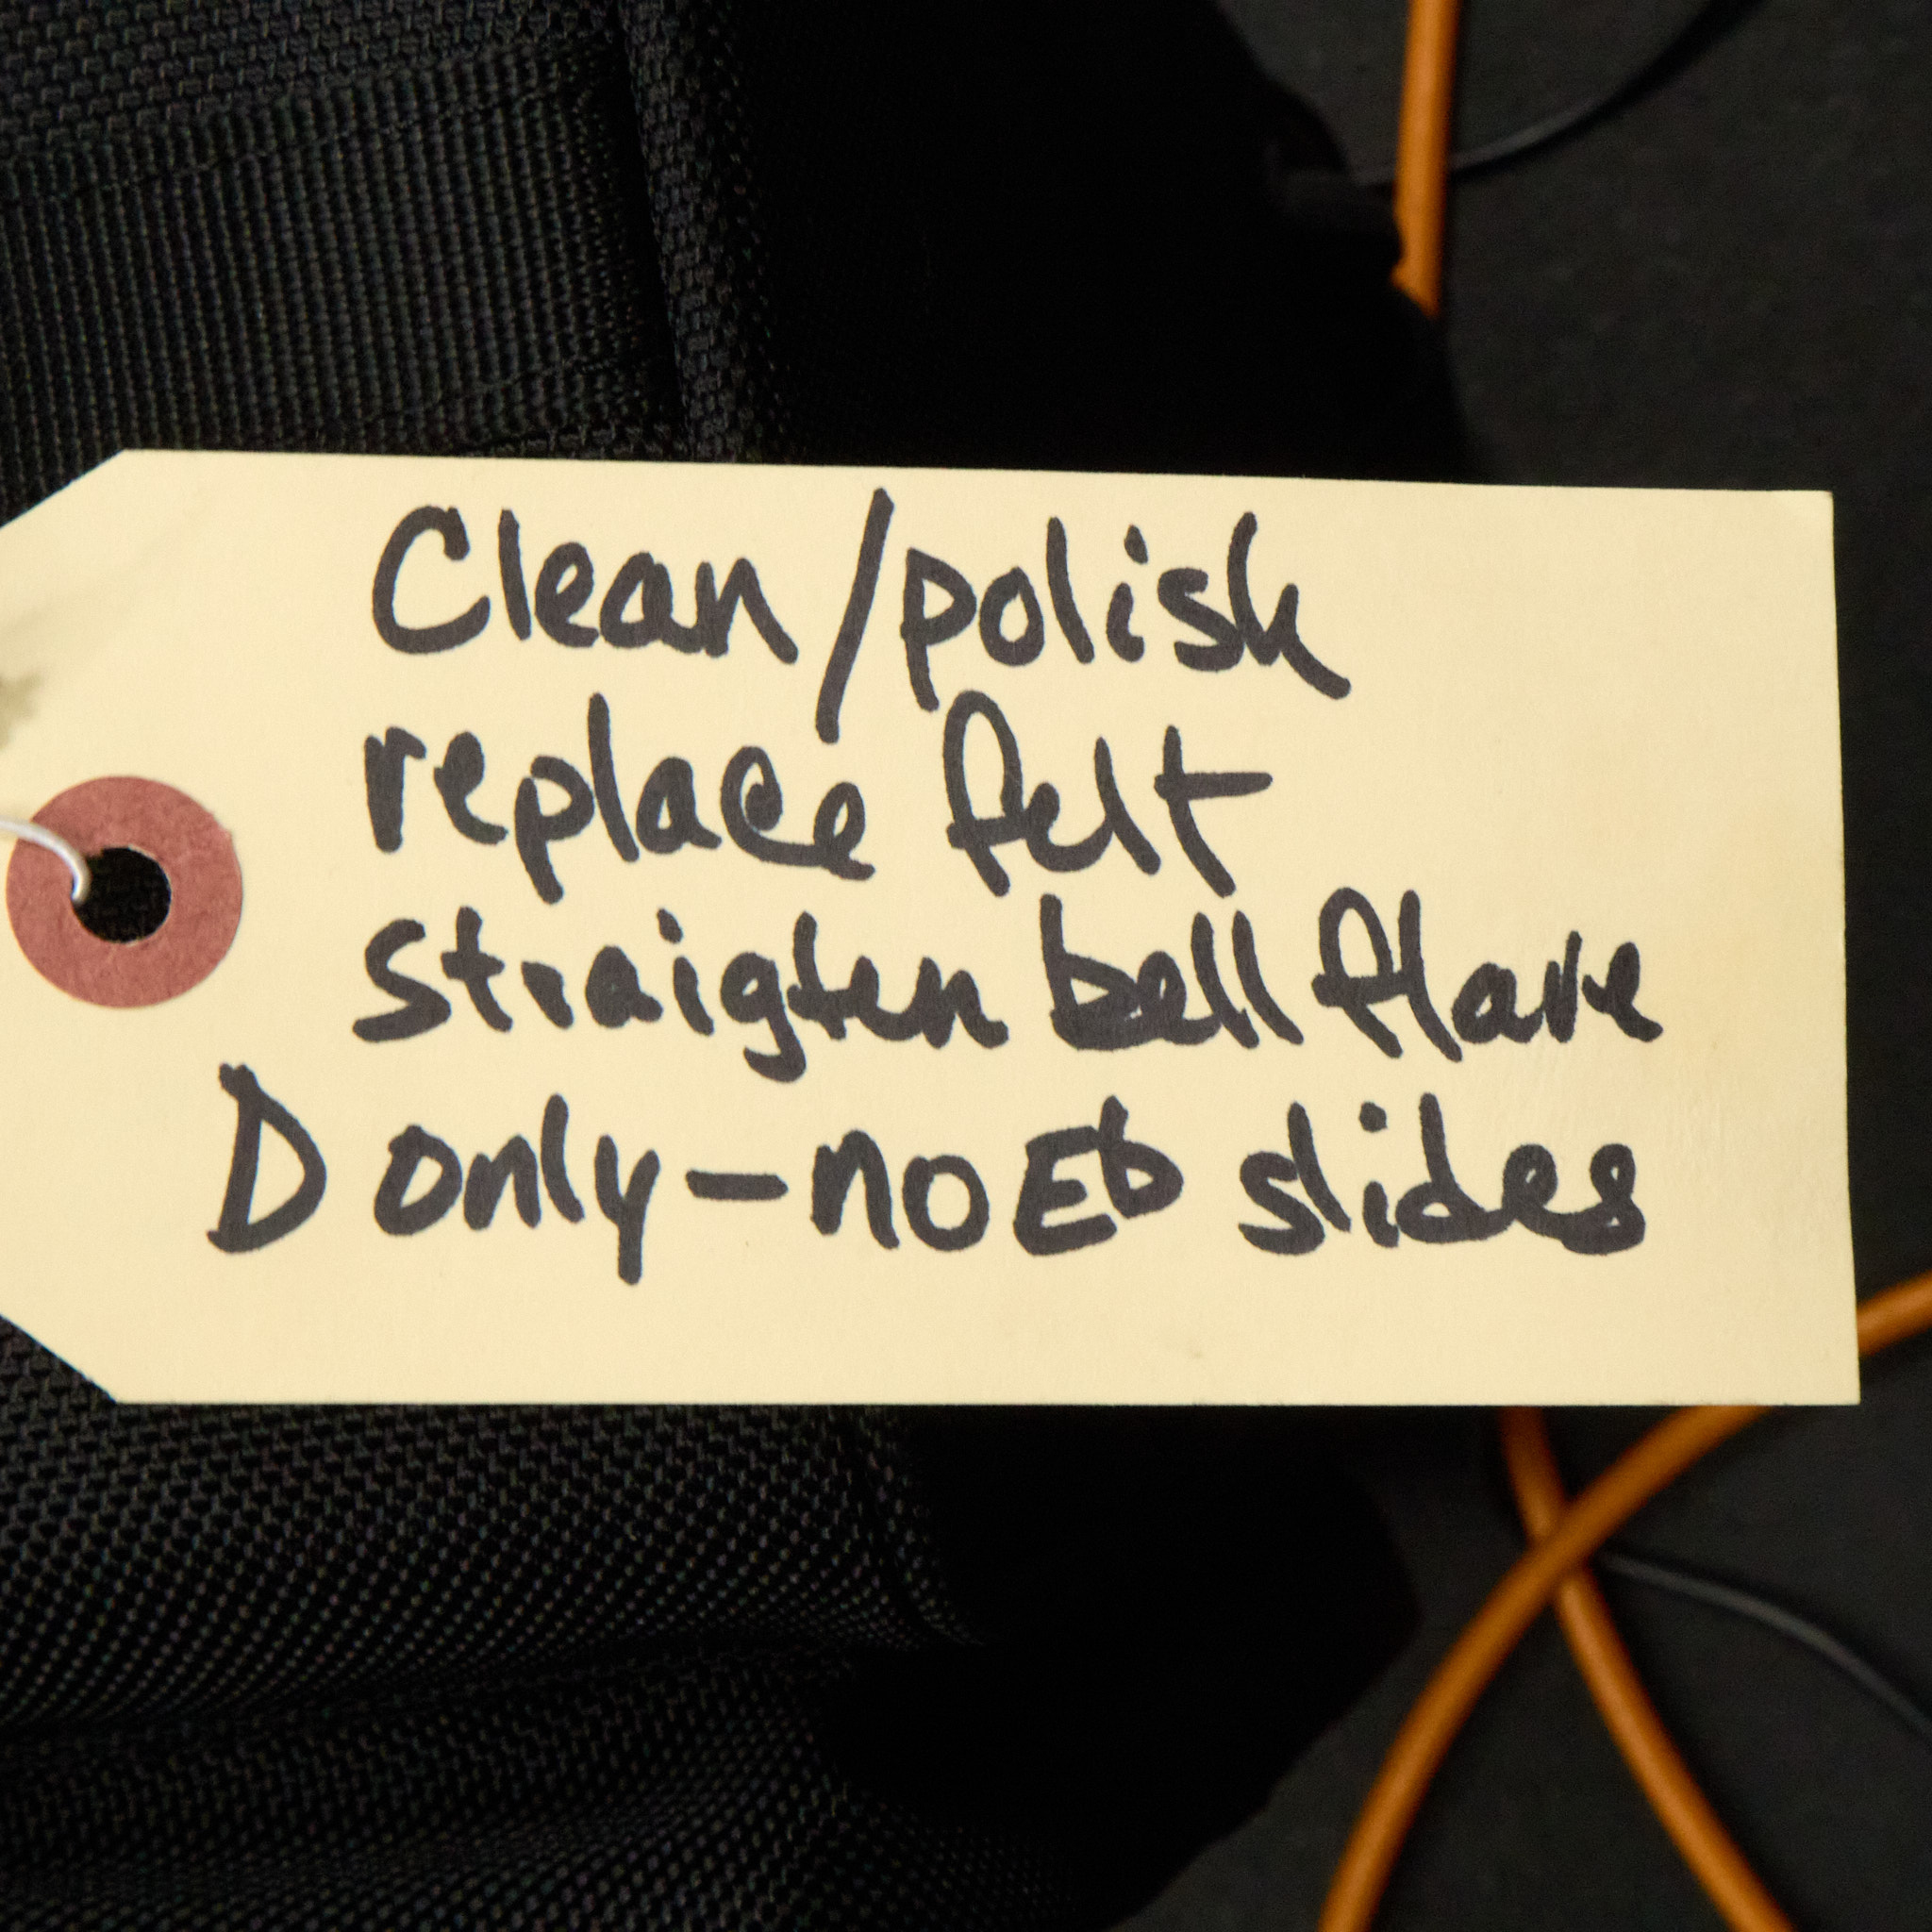 Clean/polish
replace felt
straigten bell flare
D only—no Eb slides